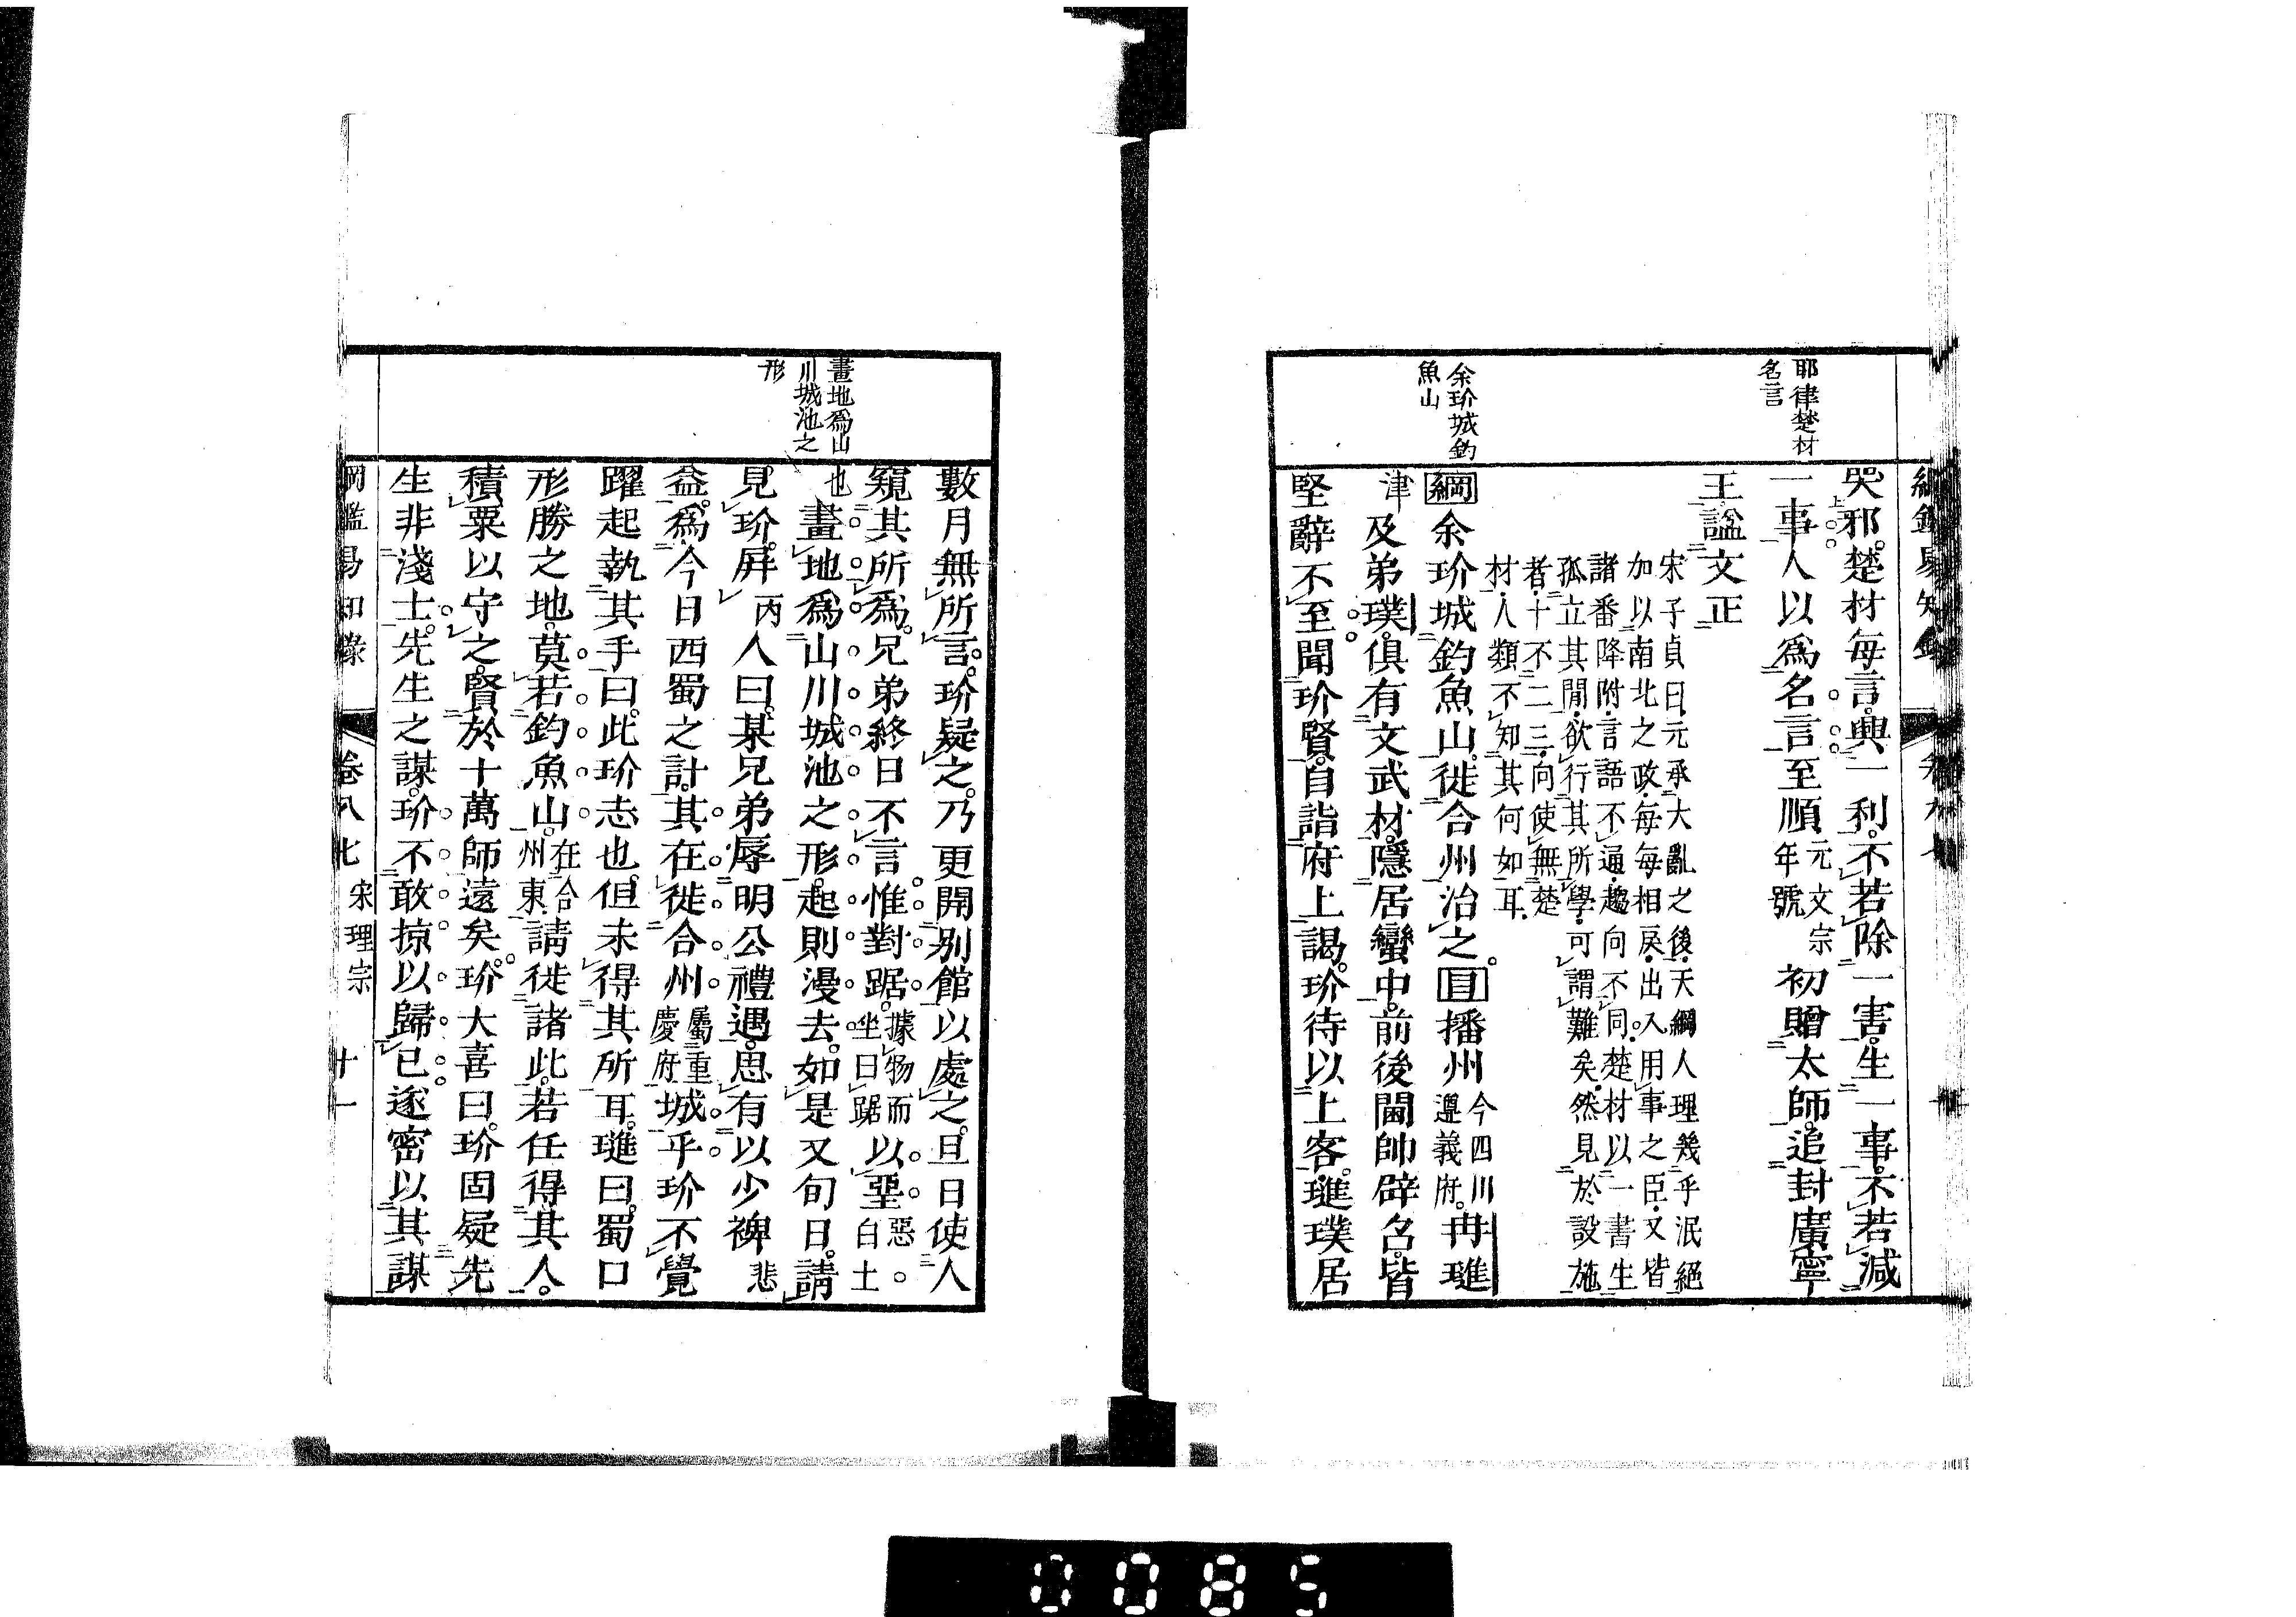 耶律楚材
名言
余玠城釣
魚山
哭邪。楚材每言。興一利。不若除一害。生一事。不若減
一事。人以爲名言。至順元文宗年號初。贈太師。追封廣寧
王。諡文正
宋子貞曰。元承大亂之後。天綱人理。幾乎泯絕
加以南北之政。每每相戾。出入用事之臣。又皆
諸番降附。言語不通。趨向不同。楚材以一書生
孤立其閒。欲行其所學。可謂難矣。然見於設施
者。十不二三。向使無楚
材。人類不知其何如耳。
綱余玠城釣魚山。徙合州治之。目播州今四川遵義府。冉璡
津及弟璞。俱有文武材。隱居蠻中。前後閫帥辟召。皆
堅辭不至。聞玠賢。自詣府上謁。玠待以上客。璡璞居
畫地爲山
川城池之
形
數月無所言。玠疑之。乃更開別館以處之。旦日使人
窺其所爲。兄弟終日不言。惟對踞。據物而坐曰踞以堊惡。白土
也畫地爲山川城池之形。起則漫去。如是又旬日。請
見玠。屏丙人曰。某兄弟辱明公禮遇。思有以少裨悲
益。爲今日西蜀之計。其在徙合州屬重慶府城乎。玠不覺
躍起執其手曰。此玠志也。但未得其所耳。璡曰。蜀口
形勝之地。莫若釣魚山。在合州東。請徙諸此。若任得其人。
積粟以守之。賢於十萬師遠矣。玠大喜曰。玠固疑先
生非淺士。先生之謀。玠不敢掠以歸己。遂密以其謀
綱鑑易知錄 卷八七 宋理宗 十一